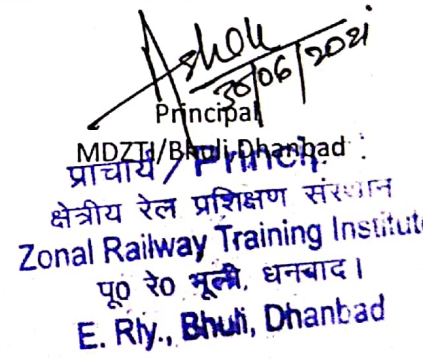 Ashok
30/06/2021
Principal
MDZTI/Bhuli, Dhanbad
प्राचार्य / Princi
क्षेत्रीय रेल प्रशिक्षण संस्थान
Zonal Railway Training Institute
पू० रे० भूली, धनबाद।
E. Rly., Bhuli, Dhanbad